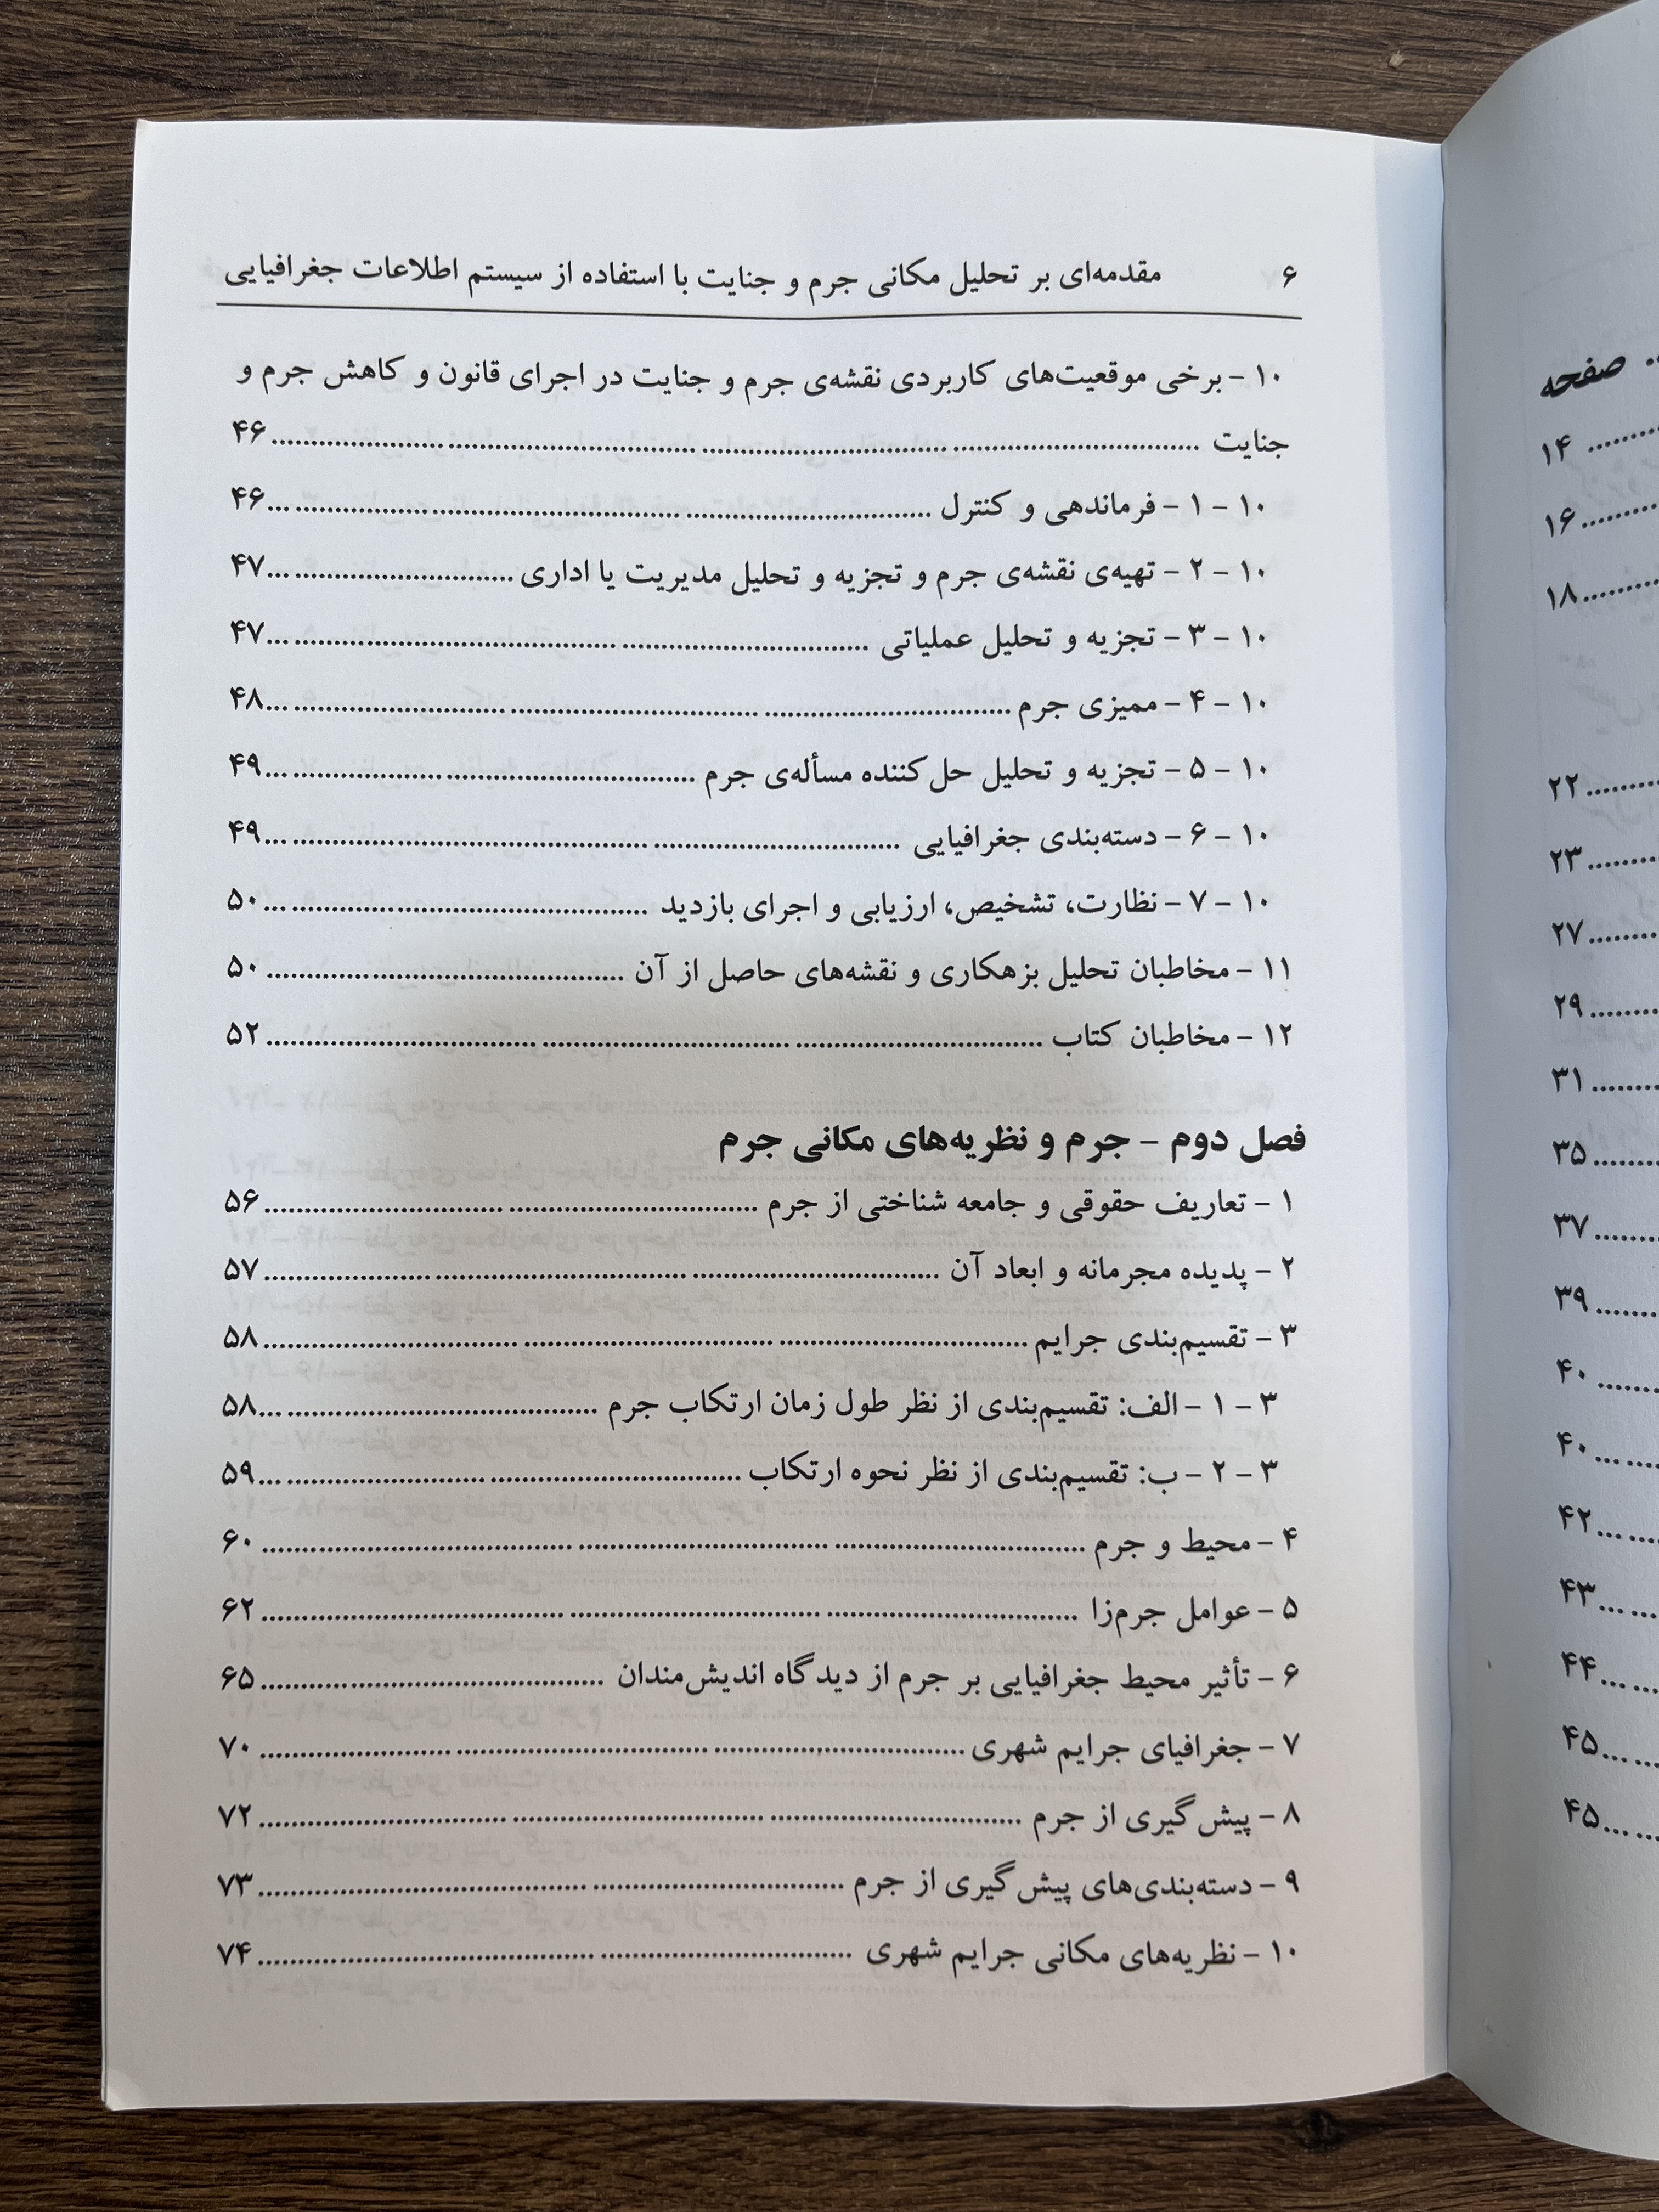 ۶ مقدمه‌ای بر تحلیل مکانی جرم و جنایت با استفاده از سیستم اطلاعات جغرافیایی
۱۰ – برخی موقعیت‌های کاربردی نقشه‌ی جرم و جنایت در اجرای قانون و کاهش جرم و
جنایت ........ ۴۶
۱۰ – ۱ – فرماندهی و کنترل ........ ۴۶
۱۰ – ۲ – تهیه‌ی نقشه‌ی جرم و تجزیه و تحلیل مدیریت یا اداری ........ ۴۷
۱۰ – ۳ – تجزیه و تحلیل عملیاتی ........ ۴۷
۱۰ – ۴ – ممیزی جرم ........ ۴۸
۱۰ – ۵ – تجزیه و تحلیل حل‌کننده مسأله‌ی جرم ........ ۴۹
۱۰ – ۶ – دسته‌بندی جغرافیایی ........ ۴۹
۱۰ – ۷ – نظارت، تشخیص، ارزیابی و اجرای بازدید ........ ۵۰
۱۱ – مخاطبان تحلیل بزهکاری و نقشه‌های حاصل از آن ........ ۵۰
۱۲ – مخاطبان کتاب ........ ۵۲
فصل دوم – جرم و نظریه‌های مکانی جرم
۱ – تعاریف حقوقی و جامعه شناختی از جرم ........ ۵۶
۲ – پدیده مجرمانه و ابعاد آن ........ ۵۷
۳ – تقسیم‌بندی جرایم ........ ۵۸
۳ – ۱ – الف: تقسیم‌بندی از نظر طول زمان ارتکاب جرم ........ ۵۸
۳ – ۲ – ب: تقسیم‌بندی از نظر نحوه ارتکاب ........ ۵۹
۴ – محیط و جرم ........ ۶۰
۵ – عوامل جرم‌زا ........ ۶۲
۶ – تأثیر محیط جغرافیایی بر جرم از دیدگاه اندیش‌مندان ........ ۶۵
۷ – جغرافیای جرایم شهری ........ ۷۰
۸ – پیش‌گیری از جرم ........ ۷۲
۹ – دسته‌بندی‌های پیش‌گیری از جرم ........ ۷۳
۱۰ – نظریه‌های مکانی جرایم شهری ........ ۷۴
صفحه
۱۴
۱۶
۱۸
۲۲
۲۳
۲۷
۲۹
۳۱
۳۵
۳۷
۳۹
۴۰
۴۰
۴۲
۴۳
۴۴
۴۵
۴۵